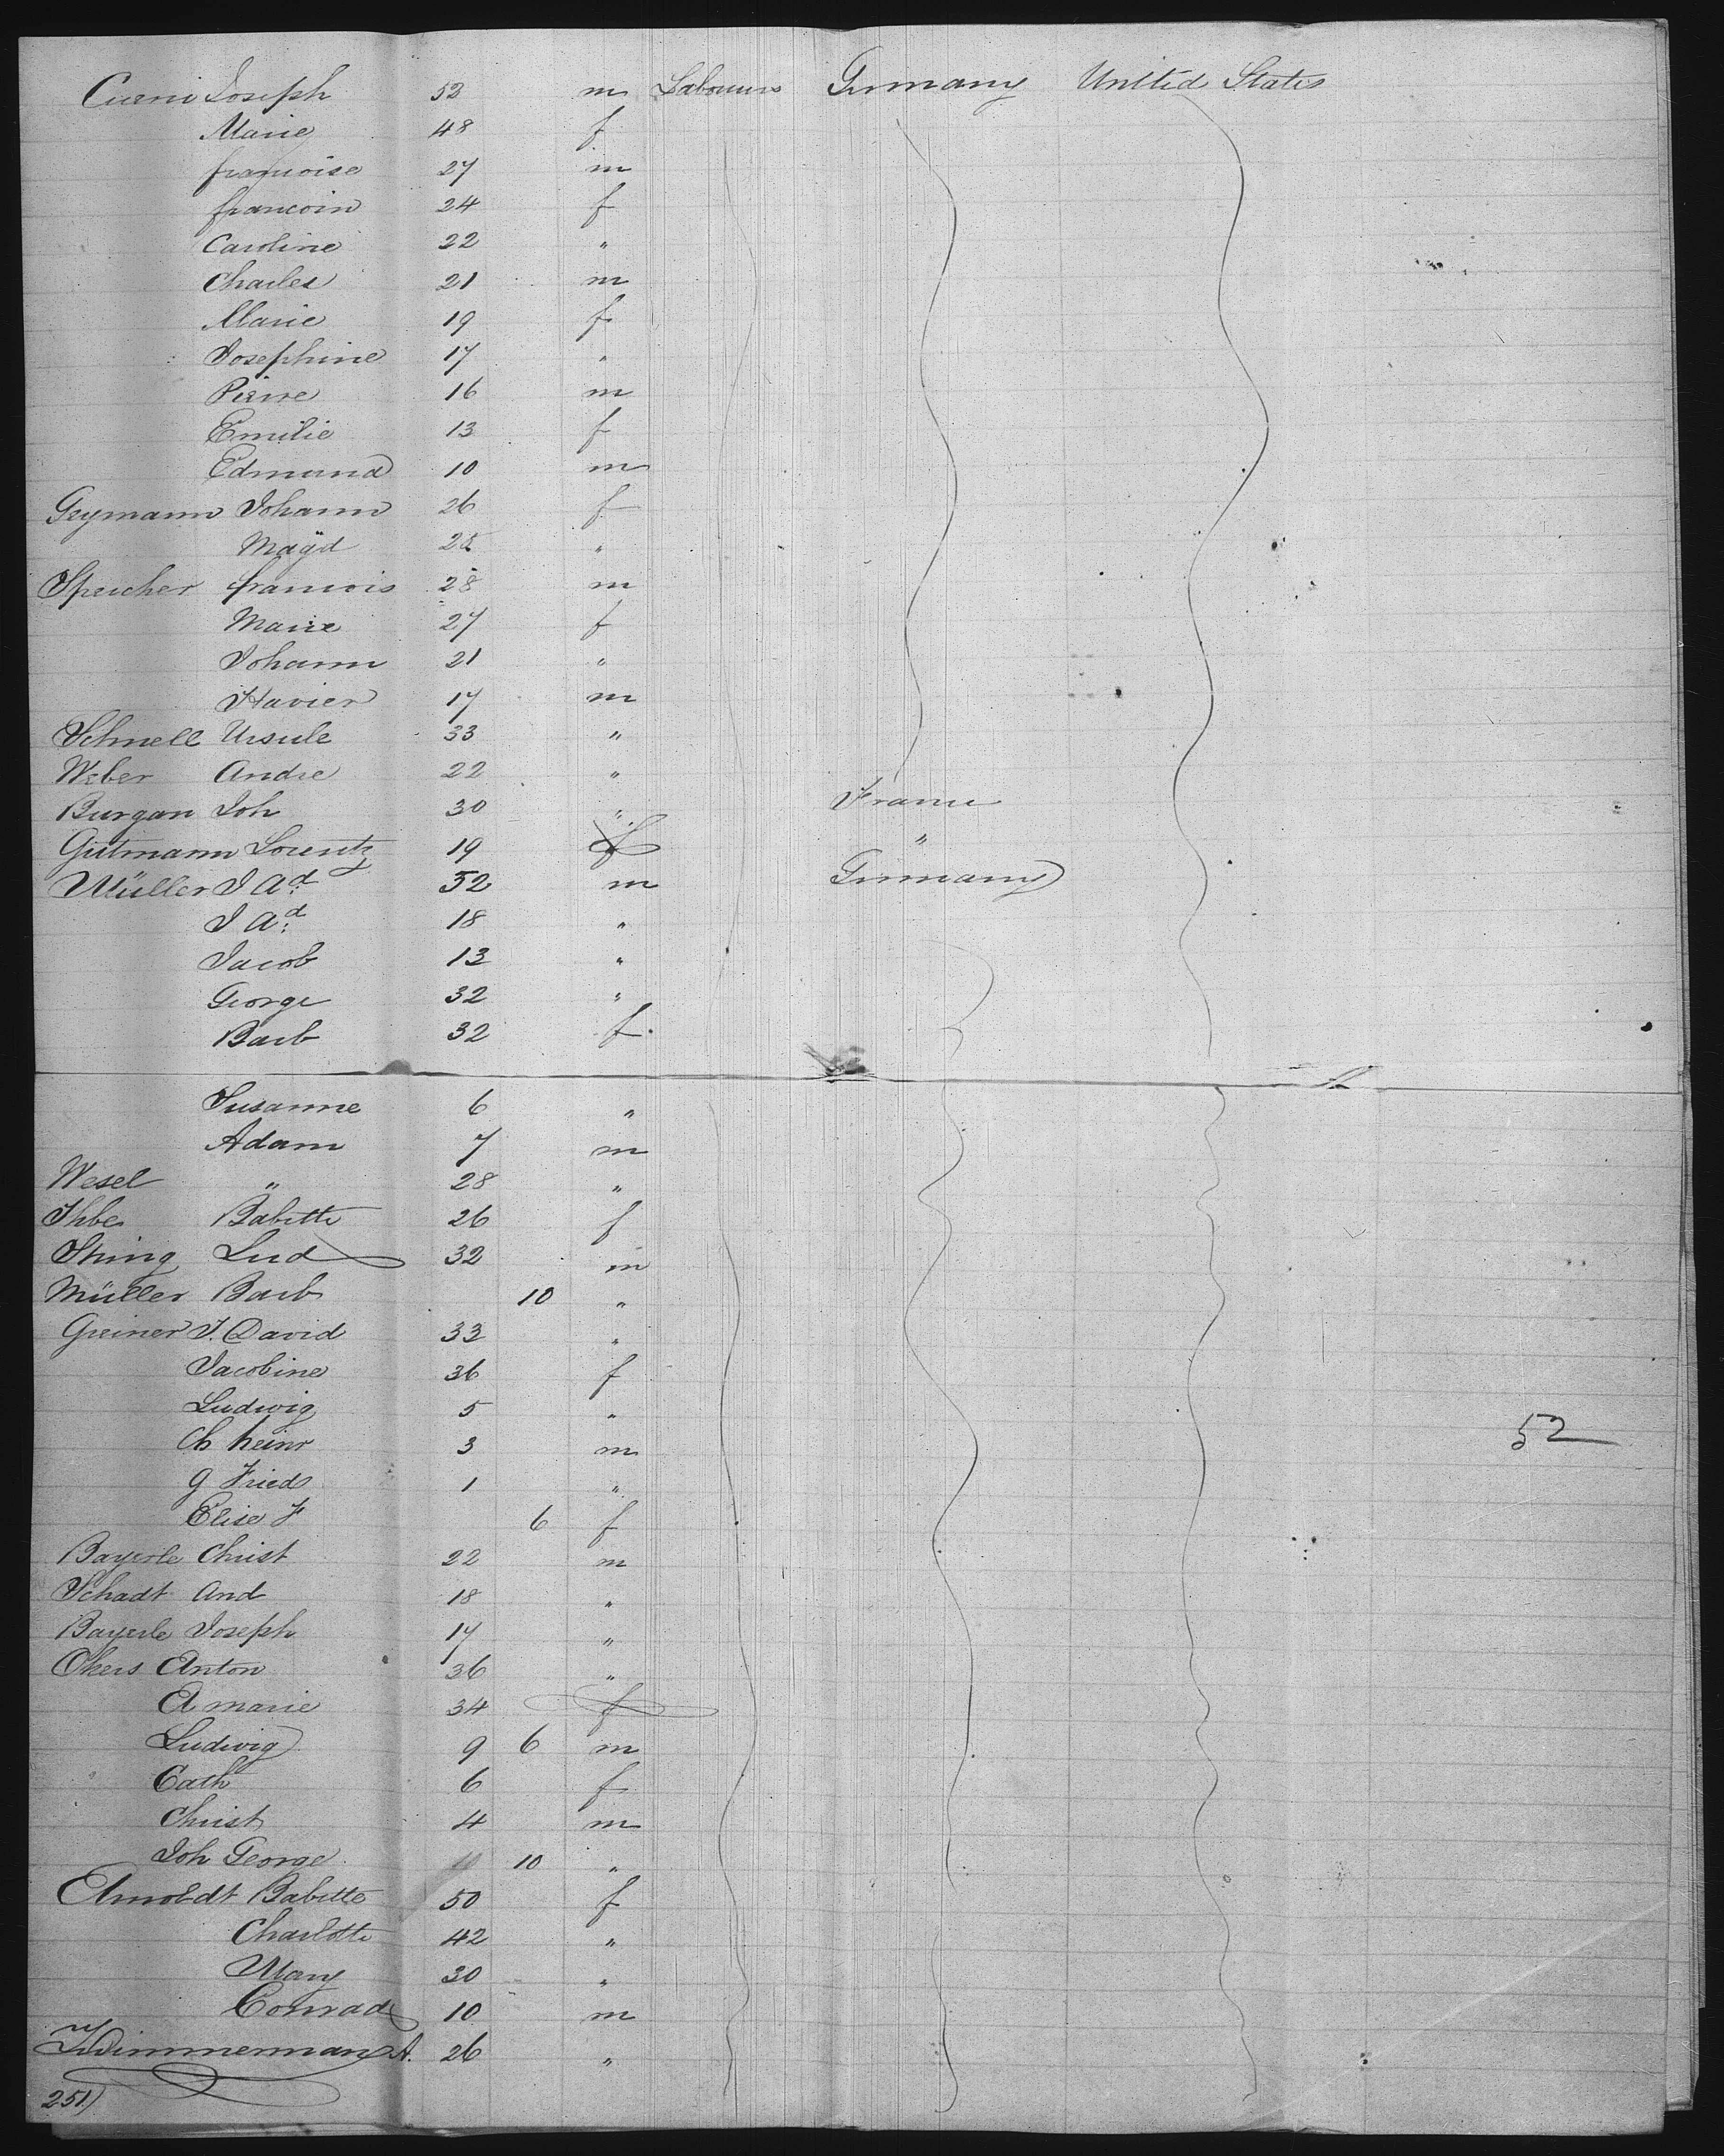 Cueni Joseph 52 m Labourers Germany United States
Marie 48 f
francoise 27 m
francoin 24 f
Caroline 22 "
Charles 21 m
Marie 19 f
Josephine 17 "
Pierre 16 m
Emilie 13 f
Edmund 10 m
Geymann Johann 26 f
Mayd 25 "
Speicher francois 28 m
Marie 27 f
Johann 21 "
Xavier 17 m
Schnell Ursule 33 "
Weber Andre 22 "
Burgan Joh 30 " France
Gutmann Lorentz 19 f "
Müller J Ad: 52 m Germany
J Ad: 18 "
Jacob 13 "
George 32 "
Barb 32 f
Susanne 6 "
Adam 7 m
Wesel " 28 "
Babette 26 f
Lud 32 m
Müller Barb 10 "
Greiner J. David 33 "
Jacobine 36 f
Ludwig 5 "
Ch heinr 3 m 52
G Fried 1 "
Elise F 6 f
Bayerle Christ 22 m
Schadt And 18 "
Bayerle Joseph 17 "
Okers Anton 36 "
A marie 34 f
Ludwig 9 6 m
Cath 6 f
Christ 4 m
Joh George 10 10 "
Arnoldt Babette 50 f
Charlotte 42 "
Mary 30 "
Conrad 10 m
Zimmerman A. 26 "
251)